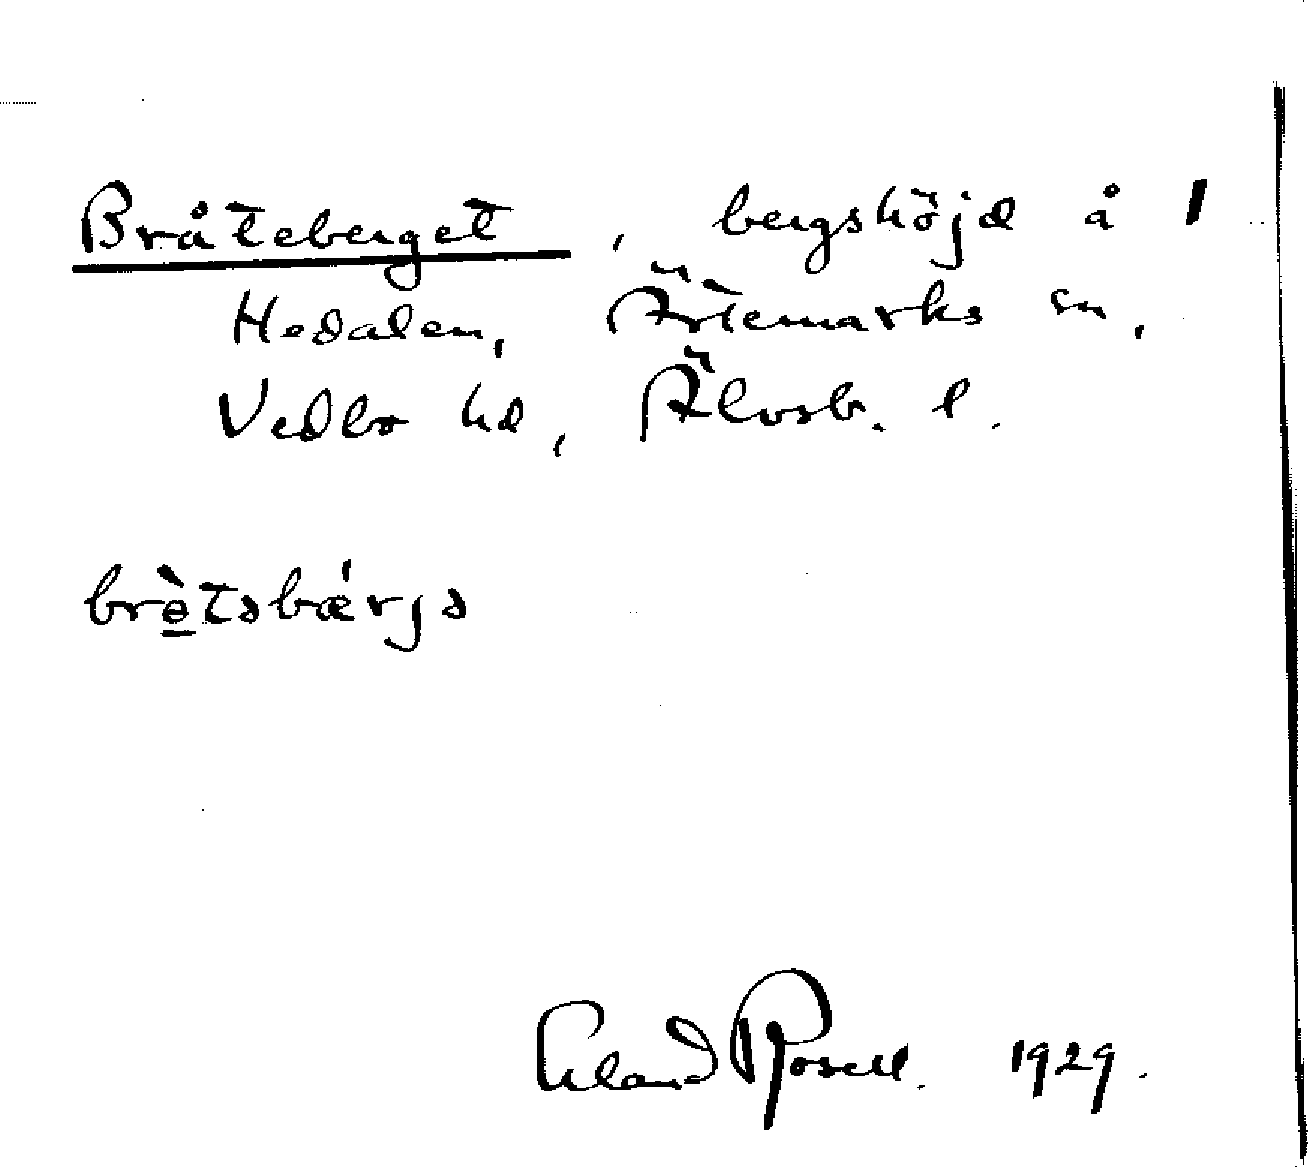 Bråteberget, bergshöjd å 1
Hedalen, Ärtemarks sn,
Vedbo hd, Älvsb. l.
brè̱təbǽrjə
Erland Rosell. 1929.